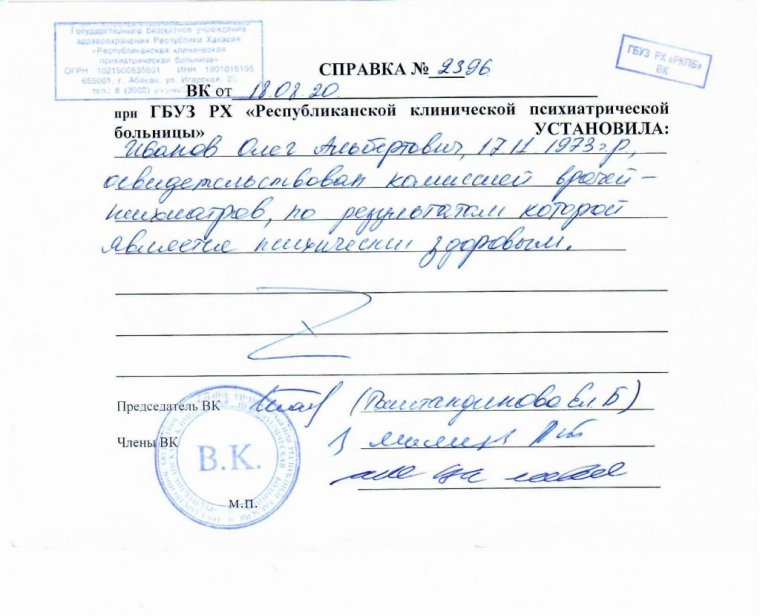 Государственное бюджетное учреждение
здравоохранения Республики Хакасия
«Республиканская клиническая
психиатрическая больница»
ОГРН 1021900535601 ИНН 1901015195
655001, г. Абакан, ул. Игарская,
тел.: 8 (3902)
ГБУЗ РХ «РКПБ»
ВК
СПРАВКА № 2396
ВК от 18.08.20
при ГБУЗ РХ «Республиканской клинической психиатрической
больницы» УСТАНОВИЛА:
Иванов Олег Альбертович, 17 11 1973 г.р,
освидетельствован комиссией врачей-
психиатров, по результатам которой
является психически здоровым.
Председатель ВК
Члены ВК
В.К.
М.П.